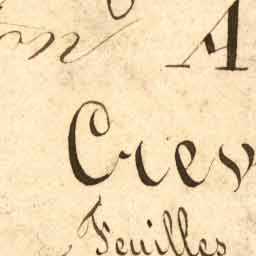 A
Crev
Feuilles